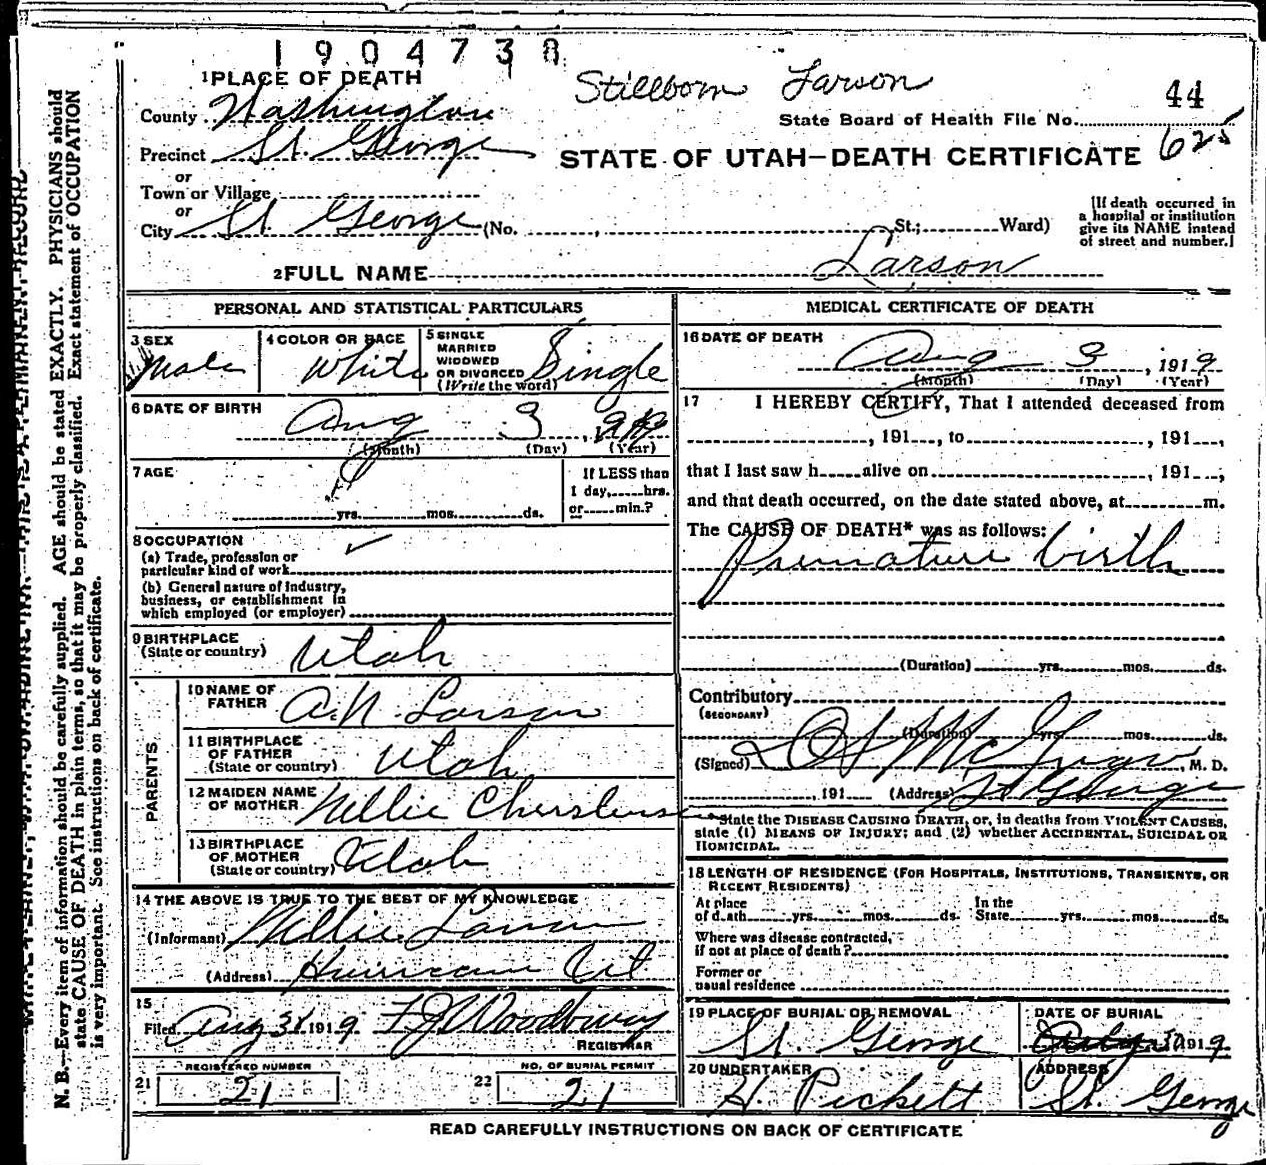 1904738
Stillborn Larson
44
1 PLACE OF DEATH
County Washington
State Board of Health File No.
625
Precinct St. George
STATE OF UTAH—DEATH CERTIFICATE
or
Town or Village
or
City St. George (No. , St.; Ward)
[If death occurred in
a hospital or institution
give its NAME instead
of street and number.]
2 FULL NAME Larson
PERSONAL AND STATISTICAL PARTICULARS
3 SEX
Male
4 COLOR OR RACE
White
5 SINGLE
MARRIED
WIDOWED
OR DIVORCED
(Write the word)
Single
6 DATE OF BIRTH
Aug 3, 1919
(Month) (Day) (Year)
7 AGE
yrs. mos. ds.
If LESS than
1 day, hrs.
or min.?
8 OCCUPATION
(a) Trade, profession or
particular kind of work
(b) General nature of industry,
business, or establishment in
which employed (or employer)
9 BIRTHPLACE
(State or country) Utah
PARENTS
10 NAME OF
FATHER A.N. Larson
11 BIRTHPLACE
OF FATHER
(State or country) Utah
12 MAIDEN NAME
OF MOTHER Nellie
13 BIRTHPLACE
OF MOTHER
(State or country) Utah
14 THE ABOVE IS TRUE TO THE BEST OF MY KNOWLEDGE
(Informant) Nellie Larson
(Address) Hurricane Ut
15
Filed Aug 31 1919 F J Woodbury
REGISTRAR
REGISTERED NUMBER
21 21
NO. OF BURIAL PERMIT
22 21
MEDICAL CERTIFICATE OF DEATH
16 DATE OF DEATH
Aug 3, 1919
(Month) (Day) (Year)
17 I HEREBY CERTIFY, That I attended deceased from
, 191 , to , 191 ,
that I last saw h alive on , 191 ;
and that death occurred, on the date stated above, at m.
The CAUSE OF DEATH* was as follows:
Premature birth
(Duration) yrs. mos. ds.
Contributory
(SECONDARY)
(Duration) yrs. mos. ds.
(Signed) , M. D.
, 191 (Address) St George
State the DISEASE CAUSING DEATH, or, in deaths from VIOLENT CAUSES,
state (1) MEANS OF INJURY; and (2) whether ACCIDENTAL, SUICIDAL OR
HOMICIDAL.
18 LENGTH OF RESIDENCE (FOR HOSPITALS, INSTITUTIONS, TRANSIENTS, OR
RECENT RESIDENTS)
At place
of death yrs. mos. ds.
In the
State yrs. mos. ds.
Where was disease contracted,
if not at place of death?
Former or
usual residence
19 PLACE OF BURIAL OR REMOVAL
St. George
DATE OF BURIAL
1919
20 UNDERTAKER
H. Pickett
ADDRESS
St. George
READ CAREFULLY INSTRUCTIONS ON BACK OF CERTIFICATE
N. B.—Every item of information should be carefully supplied. AGE should be stated EXACTLY. PHYSICIANS should
state CAUSE OF DEATH in plain terms, so that it may be properly classified. Exact statement of OCCUPATION
is very important. See instructions on back of certificate.